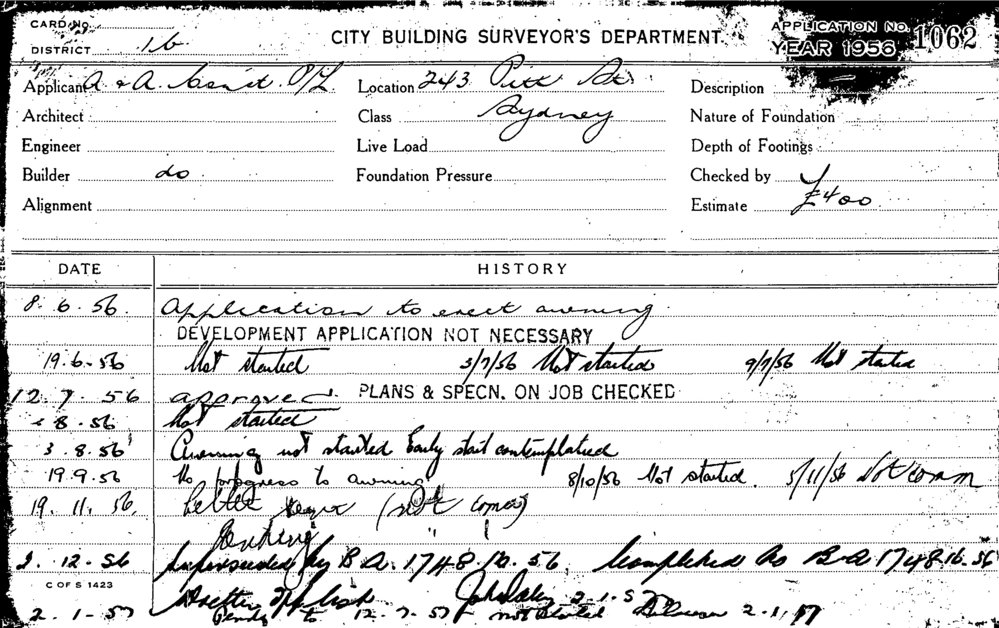 CARD No.
DISTRICT 16
CITY BUILDING SURVEYOR'S DEPARTMENT.
APPLICATION No. 1062
YEAR 1956
Applicant A & A. P/L
Location 243 Pitt St.
Description
Architect
Class Sydney
Nature of Foundation
Engineer
Live Load
Depth of Footings
Builder do
Foundation Pressure
Checked by
Alignment
Estimate £400
DATE HISTORY
8. 6. 56. Application to erect awning.
DEVELOPMENT APPLICATION NOT NECESSARY
19.6.56 Not started 3/7/56 Not started 9/7/56 Not started
12. 7. 56 approved. PLANS & SPECN. ON JOB CHECKED
8.56 Not started
3. 8. 56 Awning not started Early start contemplated
19.9.56 No progress to awning 8/10/56 Not started. 5/11/56 Not comm
19. 11. 56. Letter (not)
12. 56 Superseded by B.A. 1748 56. Completed as B.A. 1748 56
C OF S 1423
2-1.57
2. 1. 57 to 12.7.57 not started 2.1.57